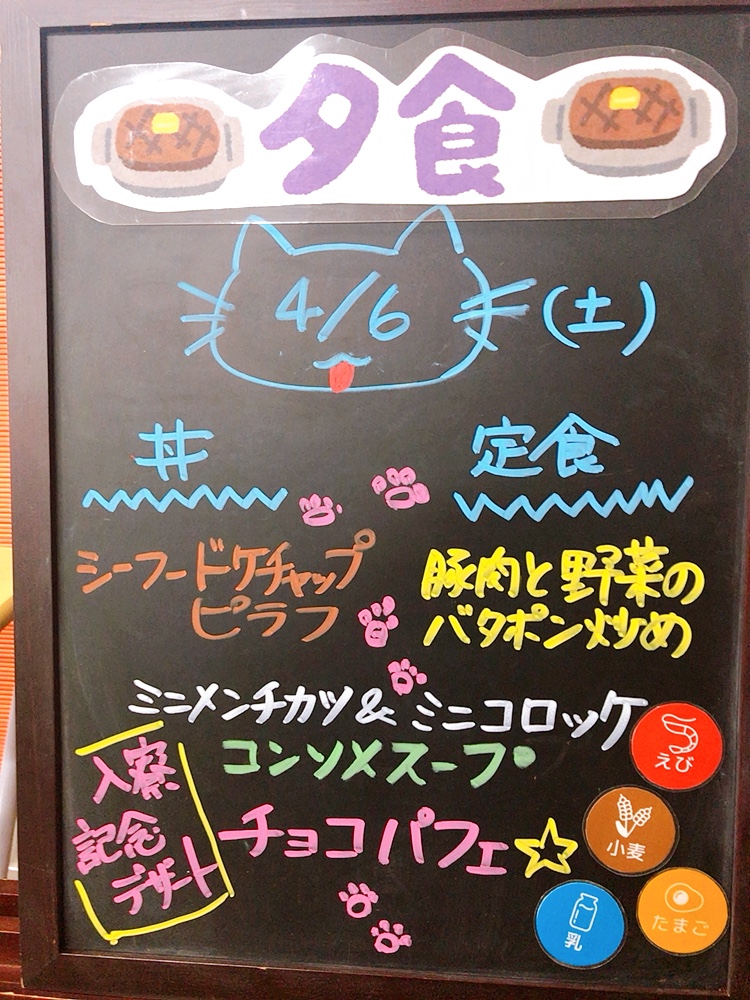 夕食
4/6 (土)
丼
定食
シーフードケチャップ
ピラフ
豚肉と野菜の
バタポン炒め
ミニメンチカツ & ミニコロッケ
コンソメスープ
入寮
記念
デザート
チョコパフェ☆
えび
小麦
乳
たまご